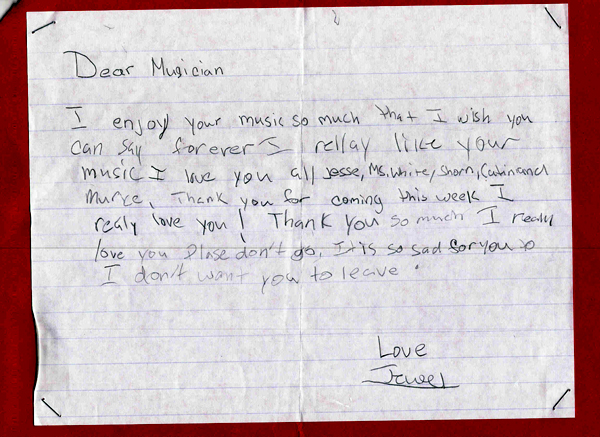 Dear Musician
I enjoy your music so much that I wish you
can say forever I rellay like your
music I love you all Jesse, Ms. White, Shorn, Catin and
Muryce, Thank you for coming this week I
realy love you! Thank you so much I really
love you Plase don't go. It is so sad for you to
I don't want you to leave.
Love
Jewel